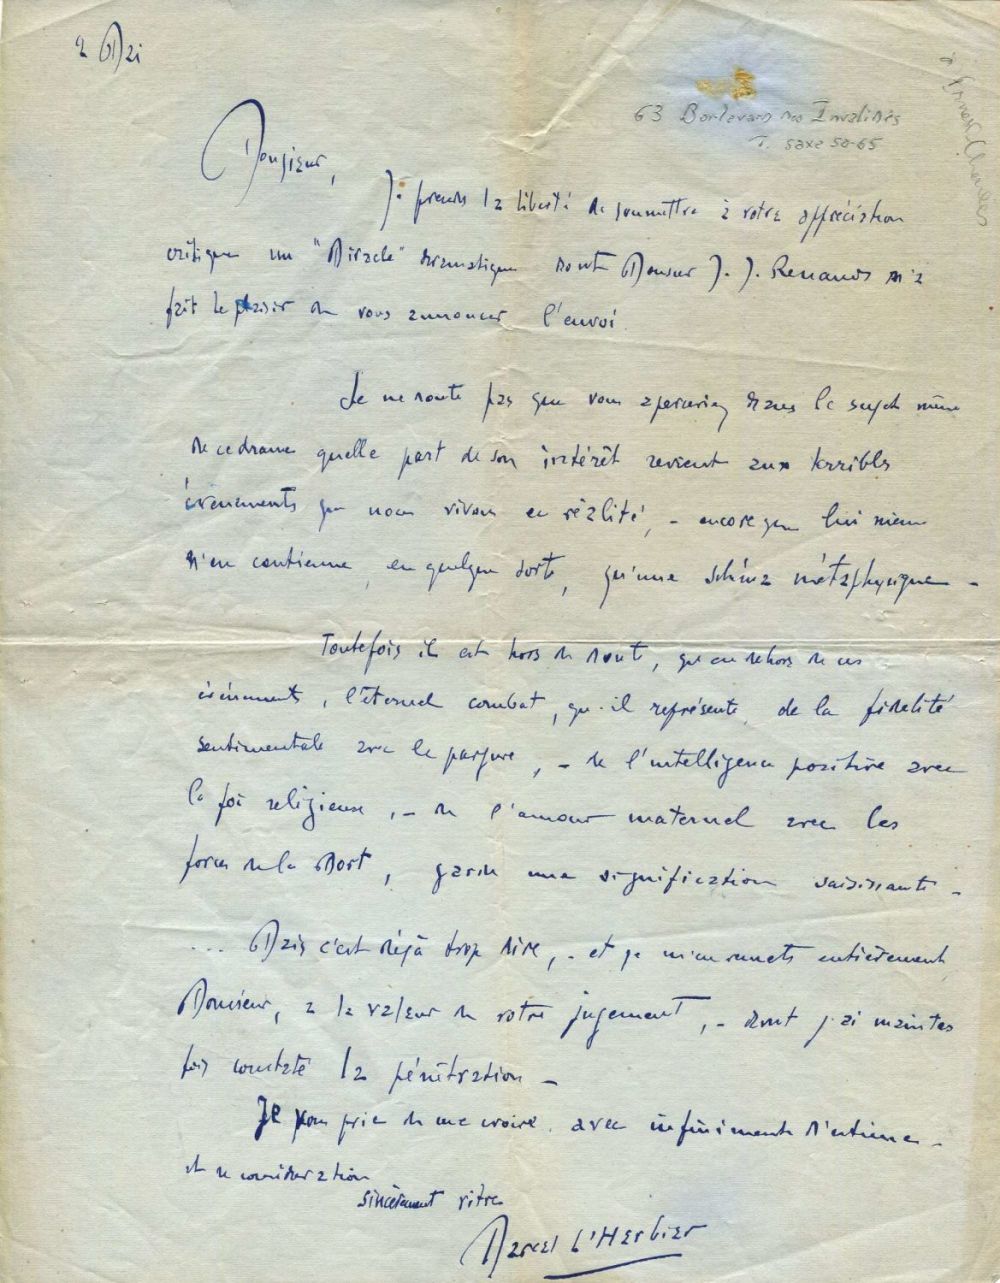 2 Mai
63 Boulevard des Invalides
T. Saxe 50-65
à Ernest-Charles
Monsieur,
Je prends la liberté de soumettre à votre appréciation
critique un "Miracle" dramatique dont Monsieur J. J. Renaud m'a
fait le plaisir de vous annoncer l'envoi.
Je ne doute pas que vous aperceviez dans le sujet même
de ce drame quelle part de son intérêt revient aux terribles
événements que nous vivons en réalité, - encore que lui-même
n'en contienne, en quelque sorte, qu'une schéma métaphysique -
Toutefois il est hors de doute, qu'en dehors de ces
événements, l'éternel combat, qu'il représente, de la fidélité
sentimentale avec le parjure, - de l'intelligence positive avec
la foi religieuse, - de l'amour maternel avec les
forces de la Mort, garde une signification saisissante -
... Mais c'est déjà trop dire, - et je m'en remets entièrement
Monsieur, à la valeur de votre jugement, - dont j'ai maintes
fois constaté la pénétration -
Je vous prie de me croire, avec infiniment d'estime -
et de considération
sincèrement vôtre
Marcel L'Herbier